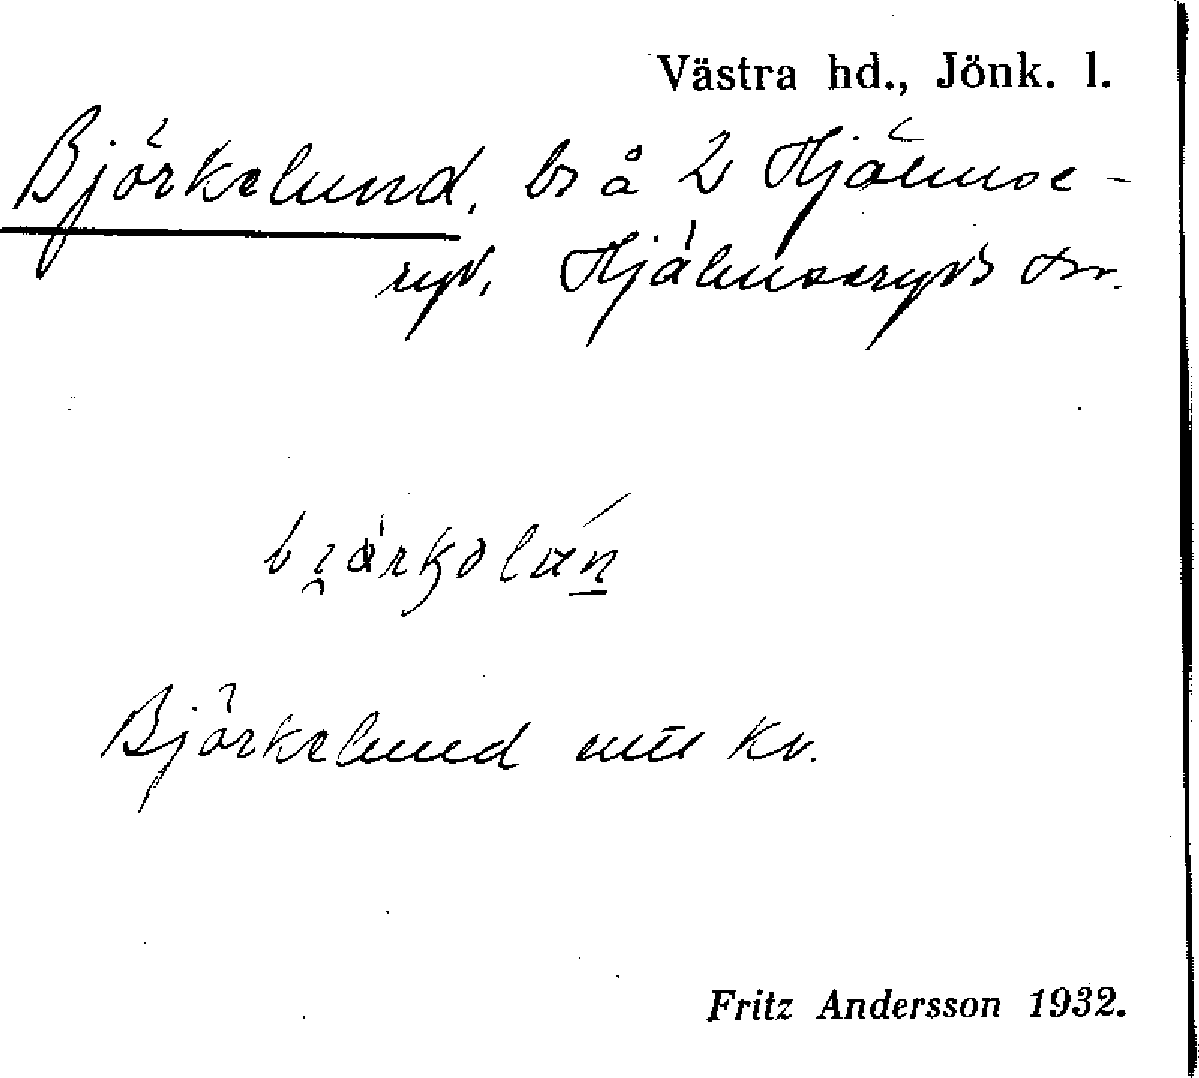 Västra hd., Jönk. l.
Björkelund, bs å 2 Hjälmse-
ryd, Hjälmseryds sn.
Björkelund mtl kv.
Fritz Andersson 1932.